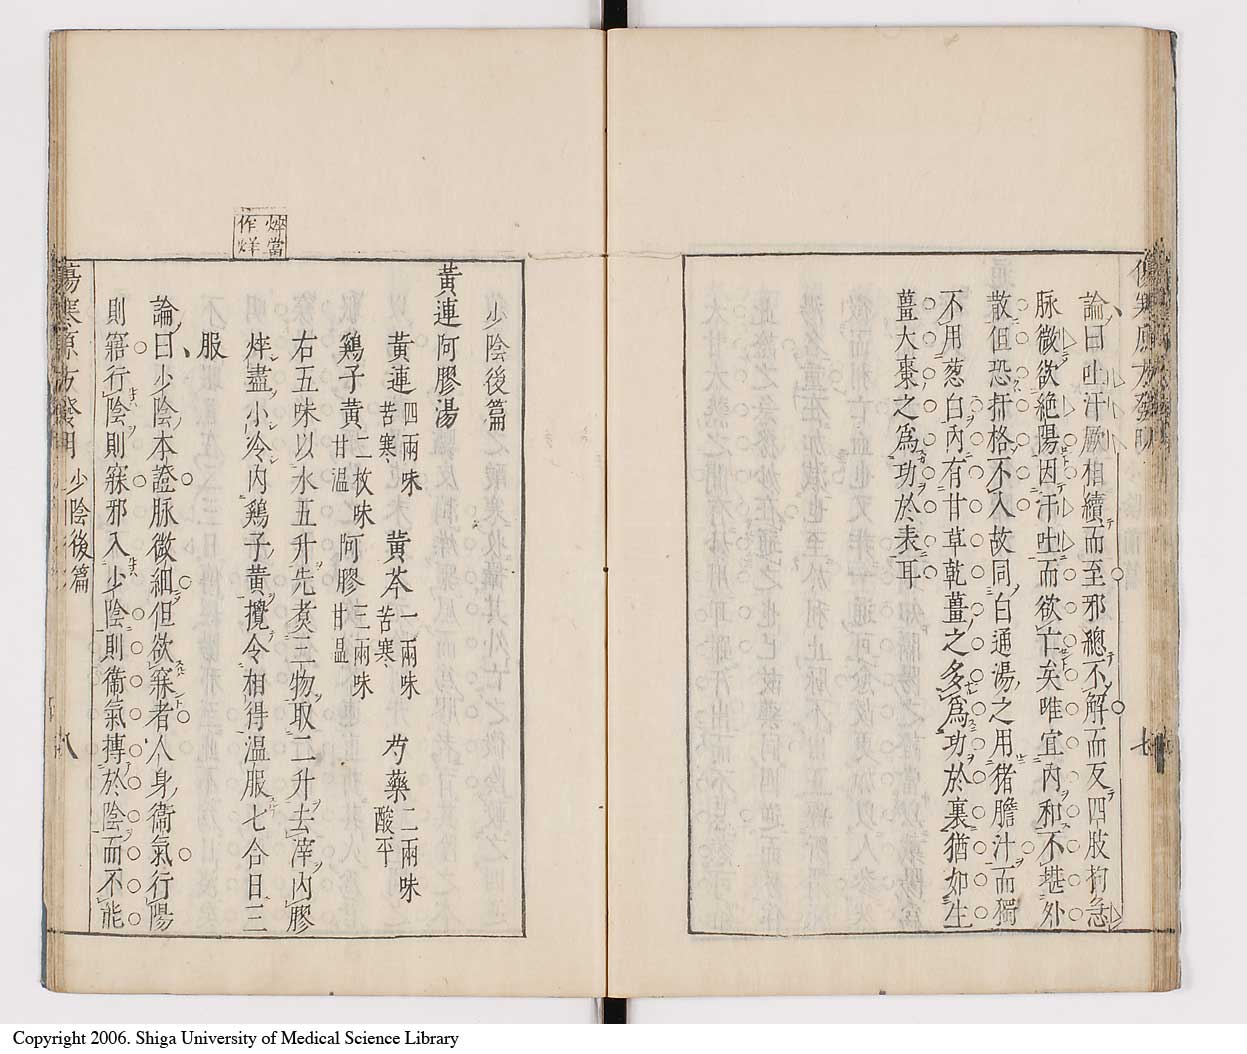 論曰吐汗厥相續而至邪總不解而反四肢拘急
脉微欲絶陽因汗吐而欲亡矣唯宜內和不堪外
散但恐扞格不入故同白通湯之用猪膽汁而獨
不用葱白內有甘草乾薑之多爲功於裏猶如生
薑大棗之爲功於表耳
七
少陰後篇
黃連阿膠湯
黃連四兩味苦寒 黃芩一兩味苦寒 芍藥二兩味酸平
鷄子黃二枚味甘温 阿膠三兩味甘温
右五味以水五升先煑三物取二升去滓內膠
烊盡小冷內鷄子黃攪令相得温服七合日三
服
論曰少陰本證脉微細但欲寐者人身衞氣行陽
則寤行陰則寐邪入少陰則衞氣搏於陰而不能
傷寒原方發明 少陰後篇 八
當
作烊
Copyright 2006. Shiga University of Medical Science Library